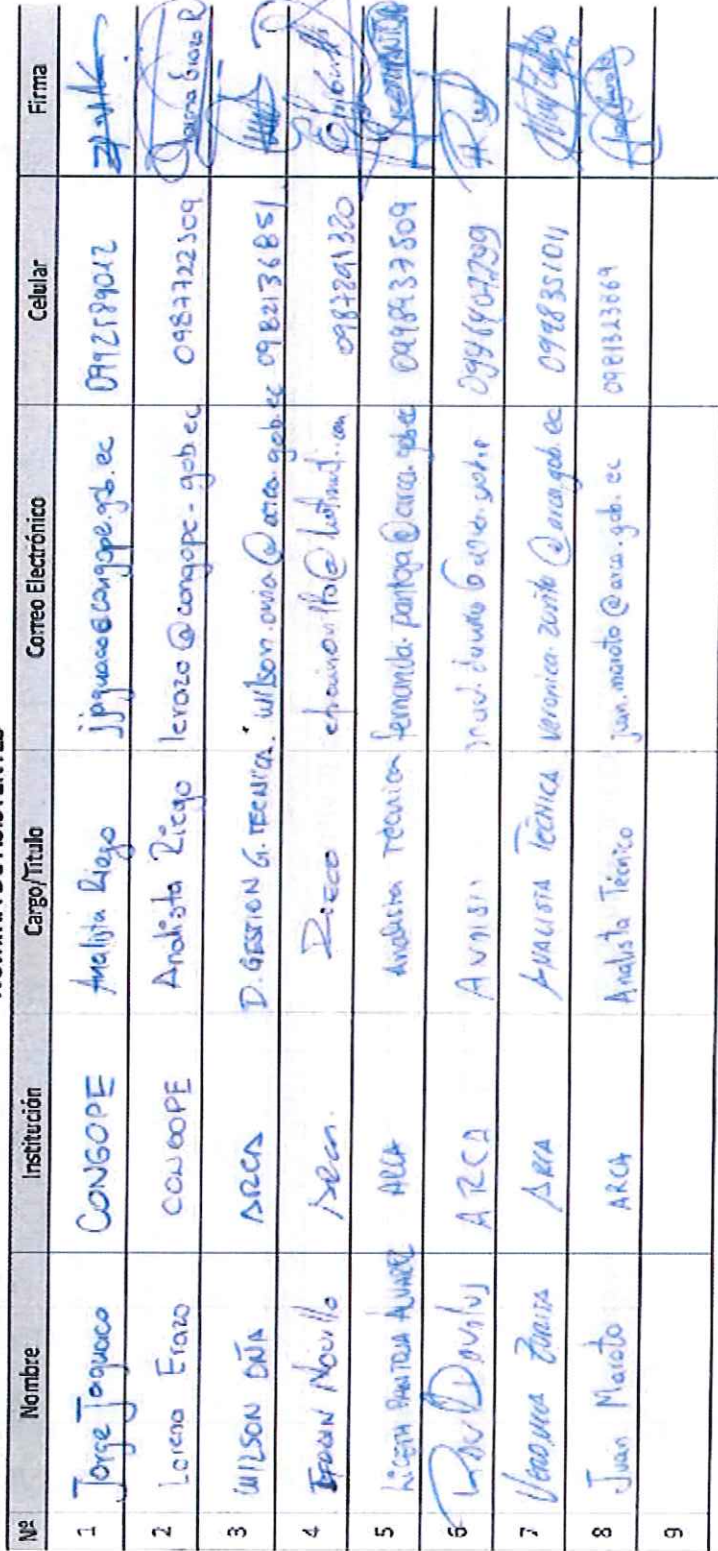 NÓMINA DE ASISTENTES
Nº Nombre Institución Cargo/Título Correo Electrónico Celular Firma
1 Jorge Jaguaco CONGOPE Analista Riego jjaguaco@congope.gob.ec 0992589012
2 Lorena Erazo CONGOPE Analista Riego lerazo@congope.gob.ec 0987722509 Lorena Erazo R
3 WILSON OÑA ARCA D. GESTION G. TECNICA. wilson.onia@arca.gob.ec 0982136851
4 Novillo 0987291320
5 LICETH PANTOJA ALVAREZ ARCA Analista Técnica fernanda.pantoja@arca.gob.ec 0998937509
6 ARCA
7 VERONICA ZURITA ARCA ANALISTA TÉCNICA veronica.zurita@arca.gob.ec 0998351011
8 Juan Maroto ARCA Analista Técnico juan.maroto@arca.gob.ec 0981323869
9